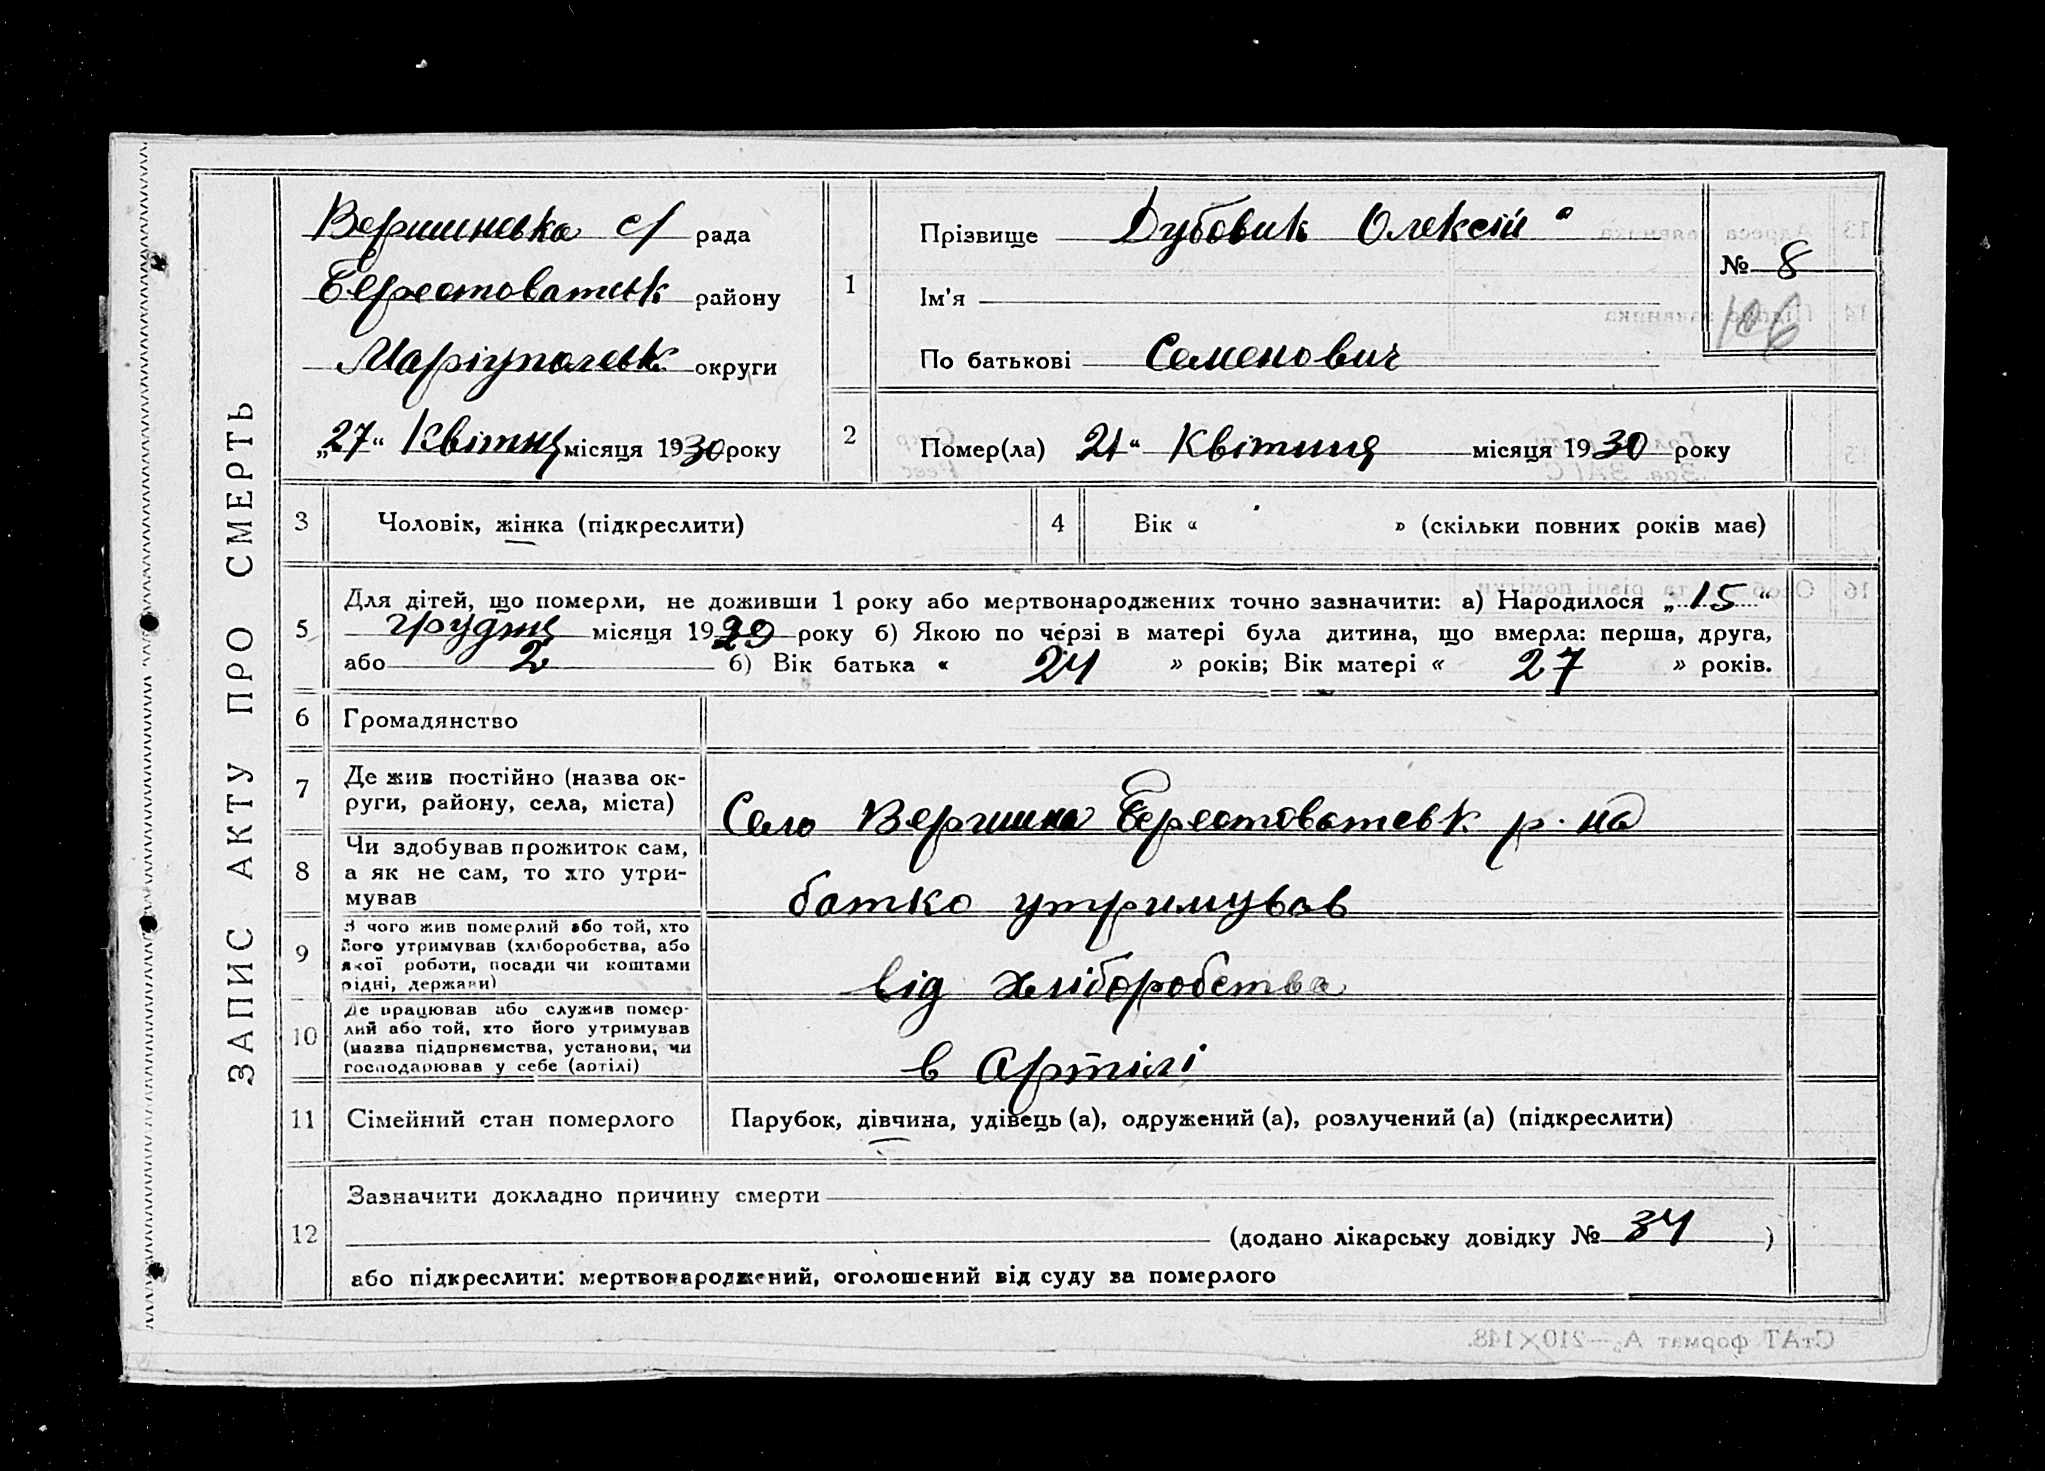 ЗАПИС АКТУ ПРО СМЕРТЬ
Вершинська с/ рада
Берестоватськ району
Маріупольськ округи
„27“ Квітня місяця 1930 року
1 Прізвище Дубовик Олексій
Ім'я
По батькові Семенович
№ 8
106
2 Помер(ла) 21“ Квітня місяця 1930 року
3 Чоловік, жінка (підкреслити)
4 Вік « » (скільки повних років має)
5 Для дітей, що померли, не доживши 1 року або мертвонароджених точно зазначити: а) Народилося „15“
грудня місяця 1929 року б) Якою по черзі в матері була дитина, що вмерла: перша, друга,
або 2 б) Вік батька « 24 » років; Вік матері « 27 » років.
6 Громадянство
7 Де жив постійно (назва ок-
руги, району, села, міста)
Село Вершина Берестоватськ р-на
8 Чи здобував прожиток сам,
а як не сам, то хто утри-
мував
батко утримував
9 З чого жив померлий або той, хто
його утримував (хліборобства, або
якої роботи, посади чи коштами
рідні, держави)
від хліборобства
10 Де працював або служив помер-
лий або той, хто його утримував
(назва підприємства, установи, чи
господарював у себе (артілі)
в Артілі
11 Сімейний стан померлого
Парубок, дівчина, удівець (а), одружений (а), розлучений (а) (підкреслити)
12 Зазначити докладно причину смерти
(додано лікарську довідку № 34 )
або підкреслити: мертвонароджений, оголошений від суду за померлого
СтАТ формат А₅—210×148.